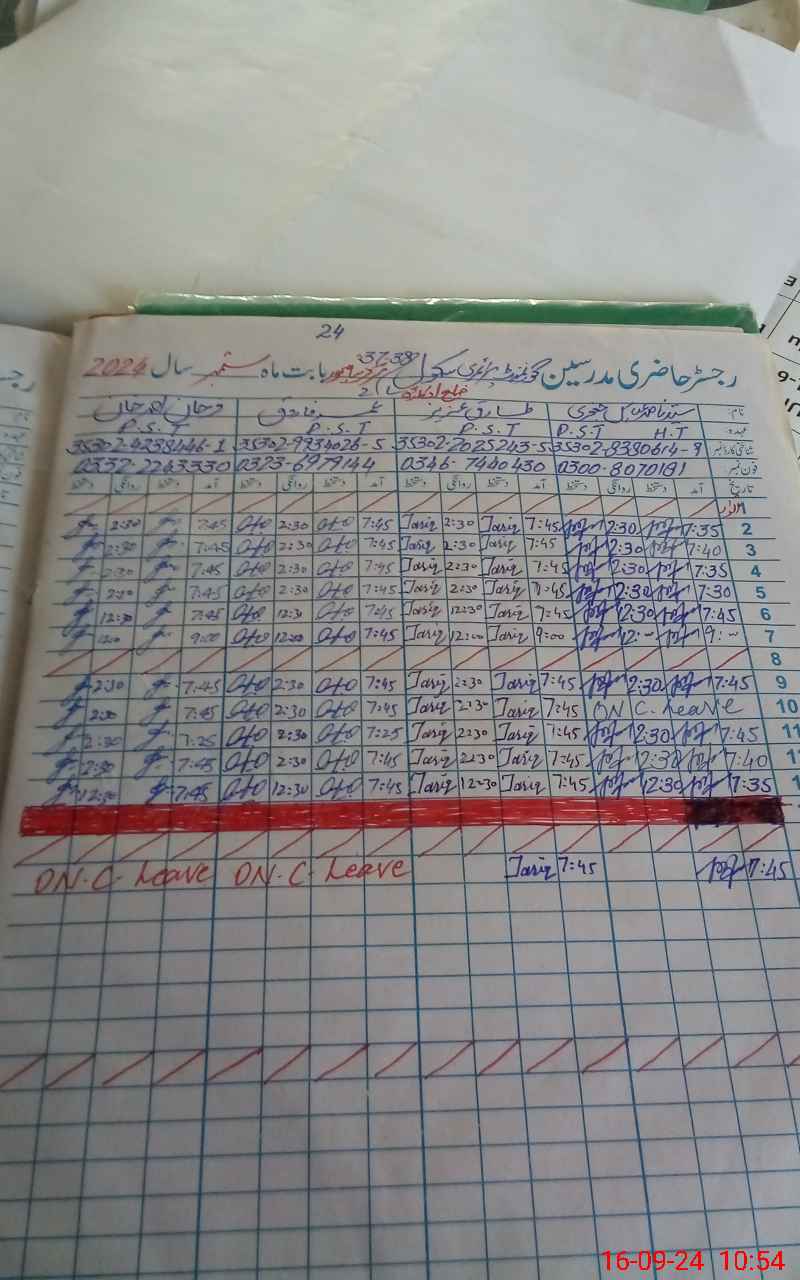 24
رجسٹر حاضری مدرسین گورنمنٹ پرائمری سکول 37-38 بابت ماہ ستمبر سال 2024
ضلع اوکاڑہ
نام:
عہدہ: H.T P.S.T P.S.T P.S.T P.S.T
شناختی کارڈ نمبر 35302-8380614-9 35302-2025243-5 35302-9934026-5 35302-4238446-1
فون نمبر 0300-8070181 0346-7440430 0323-6979144 0332-2243330
تاریخ آمد دستخط روانگی دستخط آمد دستخط روانگی دستخط آمد دستخط روانگی دستخط آمد دستخط روانگی دستخط
اتوار
2 7:35 2:30 7:45 Tariq 2:30 Tariq 7:45 2:30 7:45 2:30
3 7:40 2:30 7:45 Tariq 2:30 Tariq 7:45 2:30 7:45 2:30
4 7:35 2:30 7:45 Tariq 2:30 Tariq 7:45 2:30 7:45 2:30
5 7:30 2:30 7:45 Tariq 2:30 Tariq 7:45 2:30 7:45 2:30
6 7:45 12:30 7:45 Tariq 12:30 Tariq 7:45 12:30 7:45 12:30
7 9:- 12:- 9:00 Tariq 12:00 Tariq 7:45 12:00 9:00 12:00
8
9 7:45 2:30 7:45 Tariq 2:30 Tariq 7:45 2:30 7:45 2:30
10 ON C. Leave 7:45 Tariq 2:30 Tariq 7:45 2:30 7:45 2:30
11 7:45 2:30 7:45 Tariq 2:30 Tariq 7:25 2:30 7:25 2:30
7:40 2:30 7:45 Tariq 2:30 Tariq 7:45 2:30 7:45 2:30
7:35 12:30 7:45 Tariq 12:30 Tariq 7:45 12:30 7:45 12:30
7:45 7:45 Tariq ON. C. Leave ON. C. Leave
16-09-24 10:54